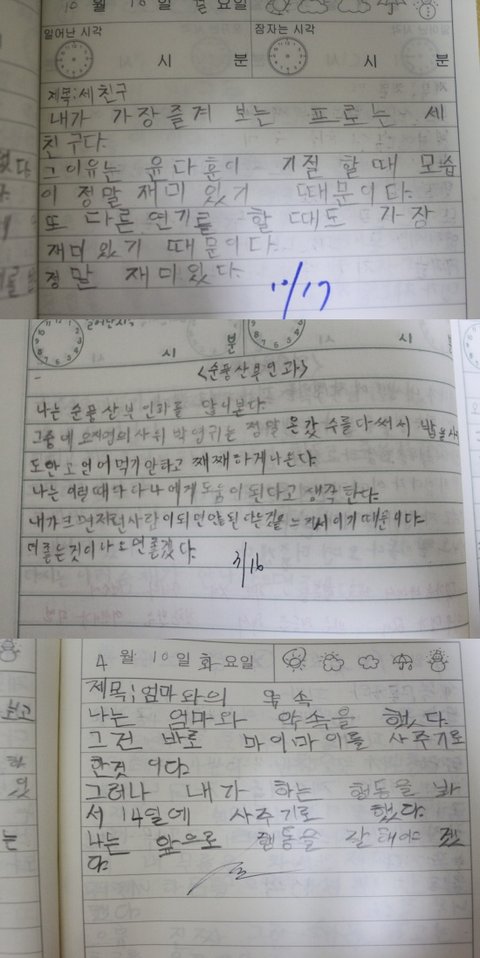 10 월 16 일 월 요일
일어난 시각
잠자는 시각
시 분
시 분
제목:세친구
내가 가장즐겨 보는 프로는 세
친구다.
그이유는 윤다훈이 기절 할때 모습
이 정말 재미있기 때문이다.
또 다른연기를 할때도 가장
재미있기 때문이다.
정말 재미있다.
10/17
일어난시각
시 분
시
<순풍산부인과>
나는 순풍산부인과를 많이본다.
그중에 오지명의 사위 박영규는 정말 온갖 수를다써서 밥을
도안고 얻어먹기만하고 째째하게나온다.
나는 이럴때마다 나에게 도움이 된다고 생각한다.
내가크면저런사람이되면안된다는것을 느끼시이기때문이다.
더 좋은것이나오면좋겠다.
3/16
4 월 10 일 화 요일
제목;엄마와의 약속
나는 엄마와 약속을 했다.
그건 바로 마이마이를 사주기로
한것 이다.
그러나 내가 하는 행동을 봐
서 14일에 사주기로 했다.
나는 앞으로 행동을 잘해야 겠
다.